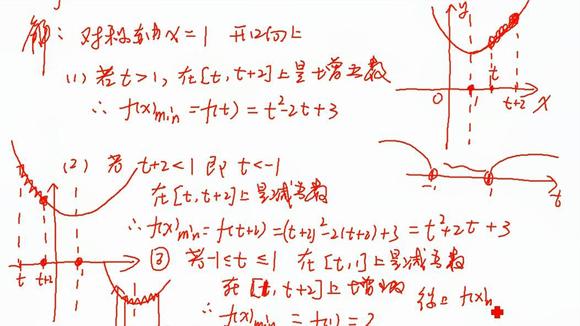 解：对称轴x=1 开口向上
(1) 若t>1, 在[t,t+2]上是增函数
∴ f(x)min=f(t)=t²-2t+3
y
0 1 t t+2 x
(2) 若 t+2<1 即 t<-1
在[t,t+2]上是减函数
∴ f(x)min=f(t+2)=(t+2)²-2(t+2)+3=t²+2t+3
-1 1 t
t t+2
③ 若-1≤t≤1 在[t,1]上是减函数
在[1,t+2]上增函数
∴ f(x)min=f(1)=2
综上 f(x)